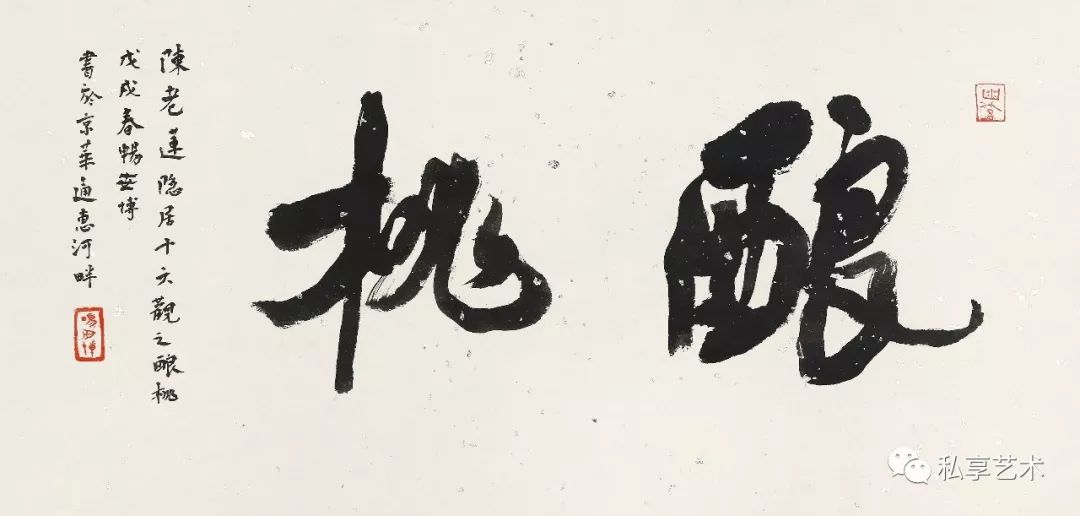 酿桃
陳老蓮隐居十六觀之酿桃
戊戌春暢世博
書於京華通惠河畔
私享艺术